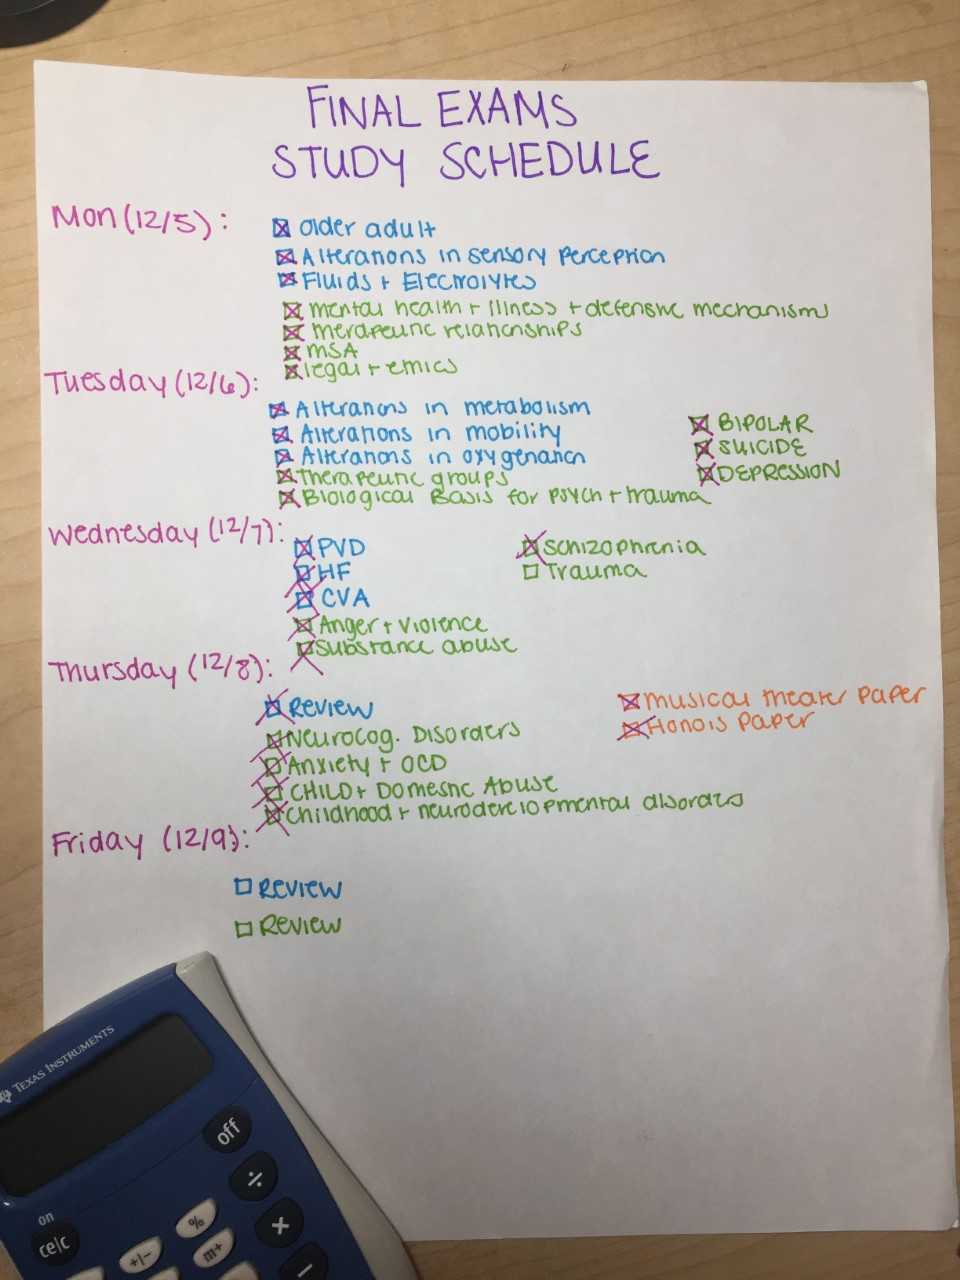 FINAL EXAMS
STUDY SCHEDULE
Mon (12/5):
older adult
Alterations in sensory perception
Fluids + Electrolytes
mental health + illness + defensive mechanisms
therapeutic relationships
MSA
legal + ethics
Tuesday (12/6):
Alterations in metabolism
Alterations in mobility
Alterations in oxygenation
therapeutic groups
Biological Basis for psych + trauma
BIPOLAR
SUICIDE
DEPRESSION
Wednesday (12/7):
PVD
HF
CVA
Anger + violence
substance abuse
schizophrenia
Trauma
Thursday (12/8):
REVIEW
Neurocog. Disorders
Anxiety + OCD
CHILD + Domestic Abuse
childhood + neurodevelopmental disorders
musical theater paper
Honors Paper
Friday (12/9):
REVIEW
REVIEW
TEXAS INSTRUMENTS
off
÷
on
ce|c
%
×
+/-
m+
−